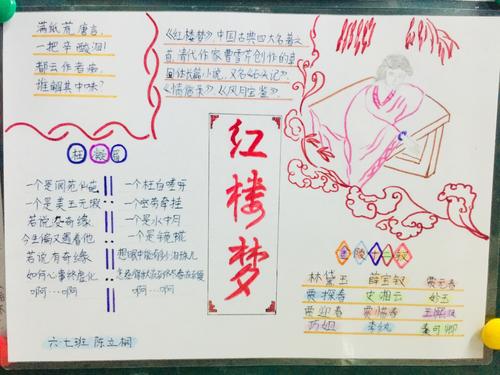 满纸荒唐言,
一把辛酸泪!
都云作者痴,
谁解其中味?
《红楼梦》中国古典四大名著之
首,清代作家曹雪芹创作的章
回体长篇小说,又名《石头记》、
《情僧录》、《风月宝鉴》。
枉凝眉
一个是阆苑仙葩
一个是美玉无瑕
若说没奇缘
今生偏又遇着他
若说有奇缘
如何心事终虚化
啊…啊
一个枉自嗟呀
一个空劳牵挂
一个是水中月
一个是镜
想眼中能有多少泪珠儿
怎
啊…啊
红楼梦
金陵十二钗
林黛玉 薛宝钗 贾元春
贾探春 史湘云 妙玉
贾迎春 贾惜春 王熙凤
巧姐 李纨 秦可卿
六·七班 陈立桐